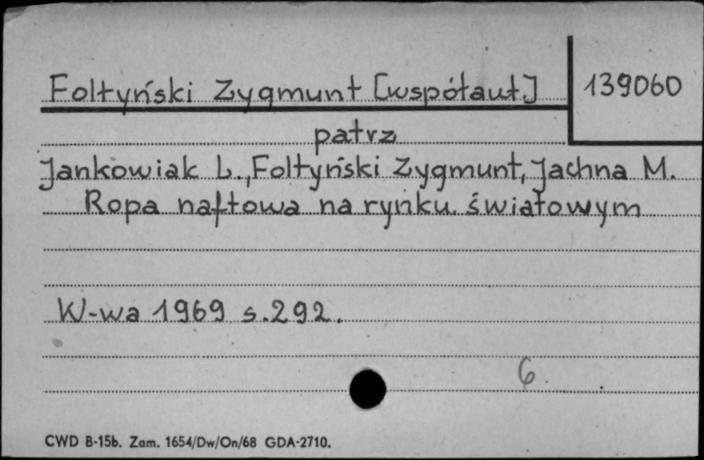 Foltyński Zygmunt [współaut.] 139060
patrz
Jankowiak L., Foltyński Zygmunt, Jachna M.
Ropa naftowa na rynku światowym
W-wa 1969 s. 292.
6
CWD B-15b. Zam. 1654/Dw/On/68 GDA-2710.